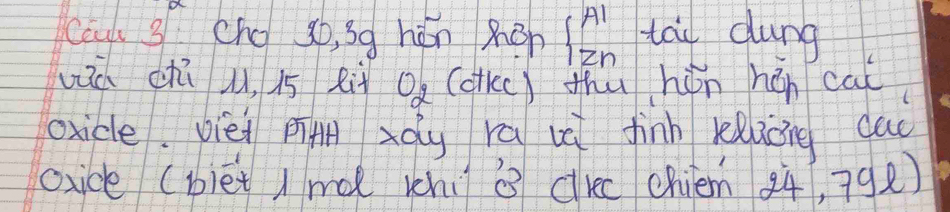 Câu 3 Cho 30,3g hỗn hợp { Al Zn tác dụng
vừa đủ 11,15 lít O2 (đkc) thu hỗn hợp các
oxide. Viết PTHH xảy ra và tính khối lượng các
oxide (biết 1 mol khí ở đkc chiếm 24,79l)